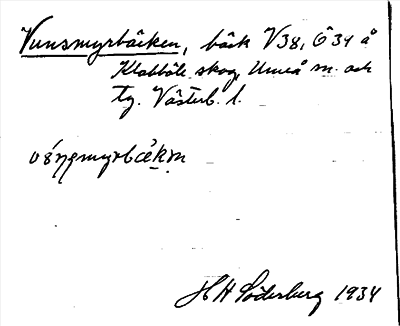 Vunsmyrbäcken, bäck V38, Ö34 å
Klabböle skog, Umeå sn. och
tg. Västerb. l.
H H Söderberg 1934